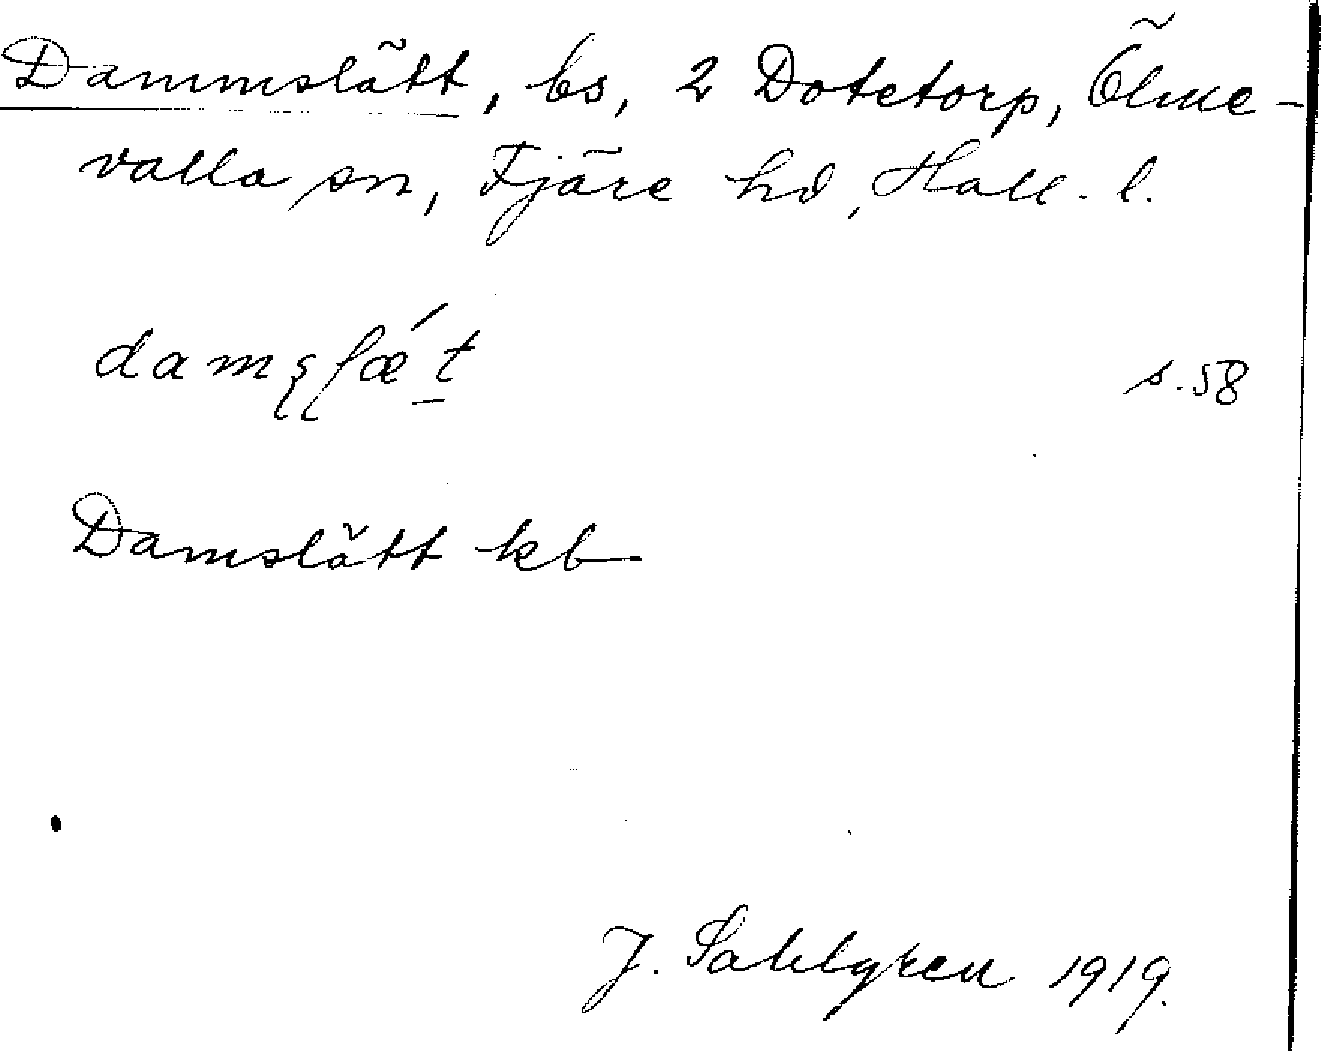 Dammslätt, bs, 2 Dotetorp, Ölme-
valla sn, Fjäre hd, Hall. l.
damʂɭǽt
s. 58
Damslätt kb
J. Sahlgren 1919.